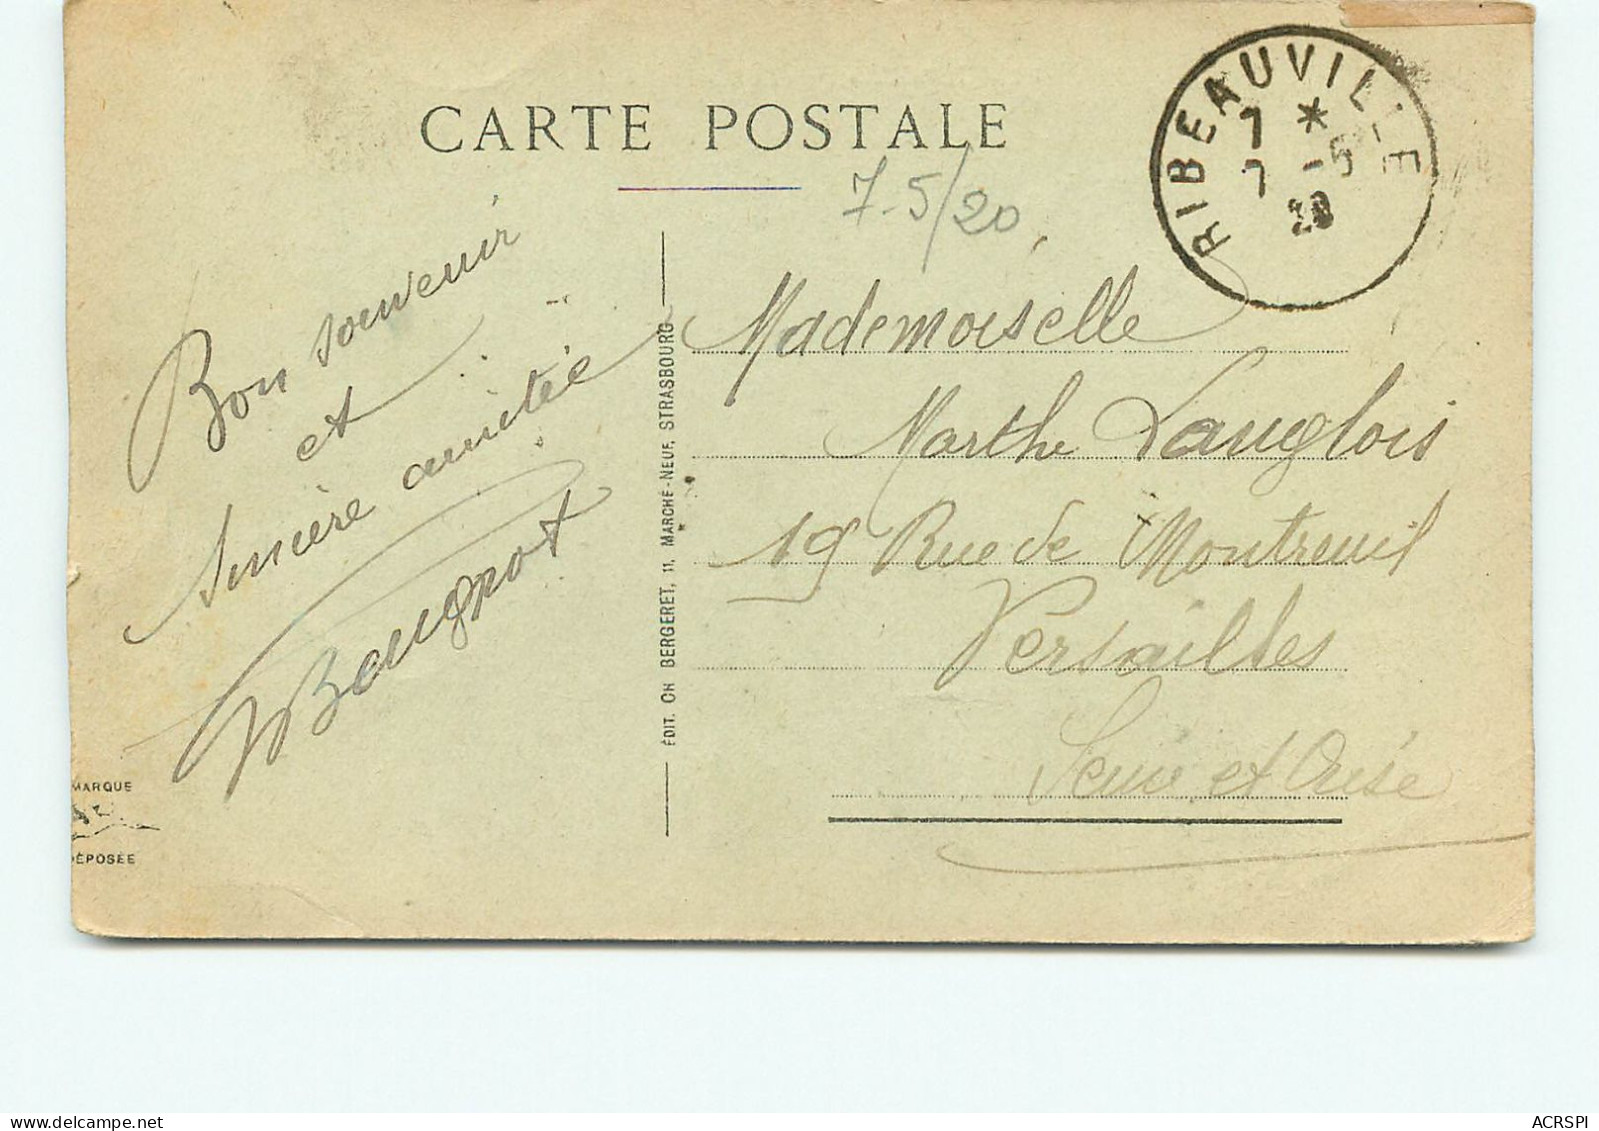 CARTE POSTALE
RIBEAUVILLE
7 *
7 -5
20
7-5/20
Bon souvenir
et
sincère amitée
ÉDIT. CH BERGERET, 11, MARCHÉ-NEUF, STRASBOURG
Mademoiselle
Marthe Langlois
19 Rue de Montreuil
Versailles
Seine et Oise
MARQUE
DÉPOSÉE
ACRSPI